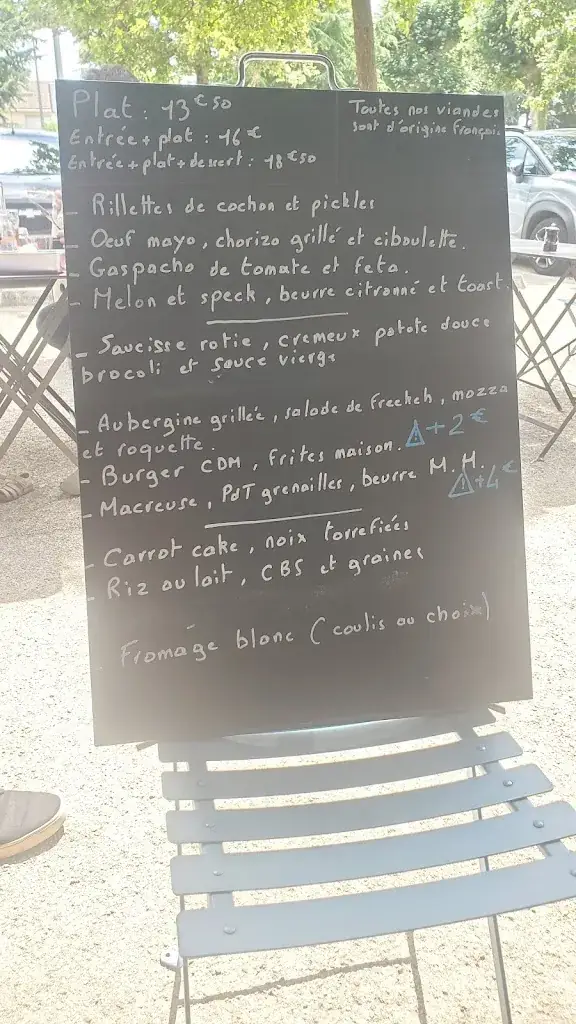 Plat : 13€50
Entrée + plat : 16€
Entrée + plat + dessert : 18€50
Toutes nos viandes
sont d'origine Français
- Rillettes de cochon et pickles
- Oeuf mayo, chorizo grillé et ciboulette.
- Gaspacho de tomate et feta.
- Melon et speck, beurre citronné et toast.
- Saucisse rotie, cremeux patate douce
brocoli et sauce vierge
- Aubergine grillée, salade de Freekeh, mozza
et roquette.
- Burger CDM, frites maison. ⚠ + 2€
- Macreuse, PdT grenailles, beurre M.H.
⚠ + 4€
- Carrot cake, noix torrefiées
- Riz au lait, CBS et graines
- Fromage blanc (coulis au choix)